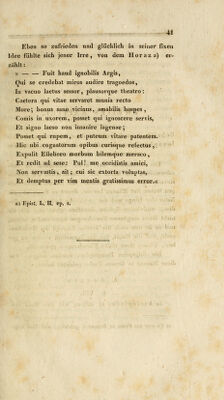 41
Eben so zufrieden und glücklich in seiner fixen
Idee fühlte sich jener Irre, von dem Horaz a) er-
zählt:
» — — Fuit haud ignobilis Argis,
Qui se credebat miros audire tragoedos,
In vacuo laetus sessor, plausorque theatro:
Caetera qui vitae servaret munia recto
More; bonus sane vicinus, amabilis hospes,
Comis in uxorem, posset qui ignoscere servis,
Et signo laeso non insanire lagenae;
Posset qui rupem, et puteum vitare patentem.
Hic ubi cognatorum opibus curisque refectus,
Expulit Elleboro morbum bilemque meraco,
Et redit ad sese: Pol! me occidistis amici,
Non servastis, ait; cui sic extorta voluptas,
Et demptus per vim mentis gratissimus error.«
a) Epist. L. II. ep. 2.